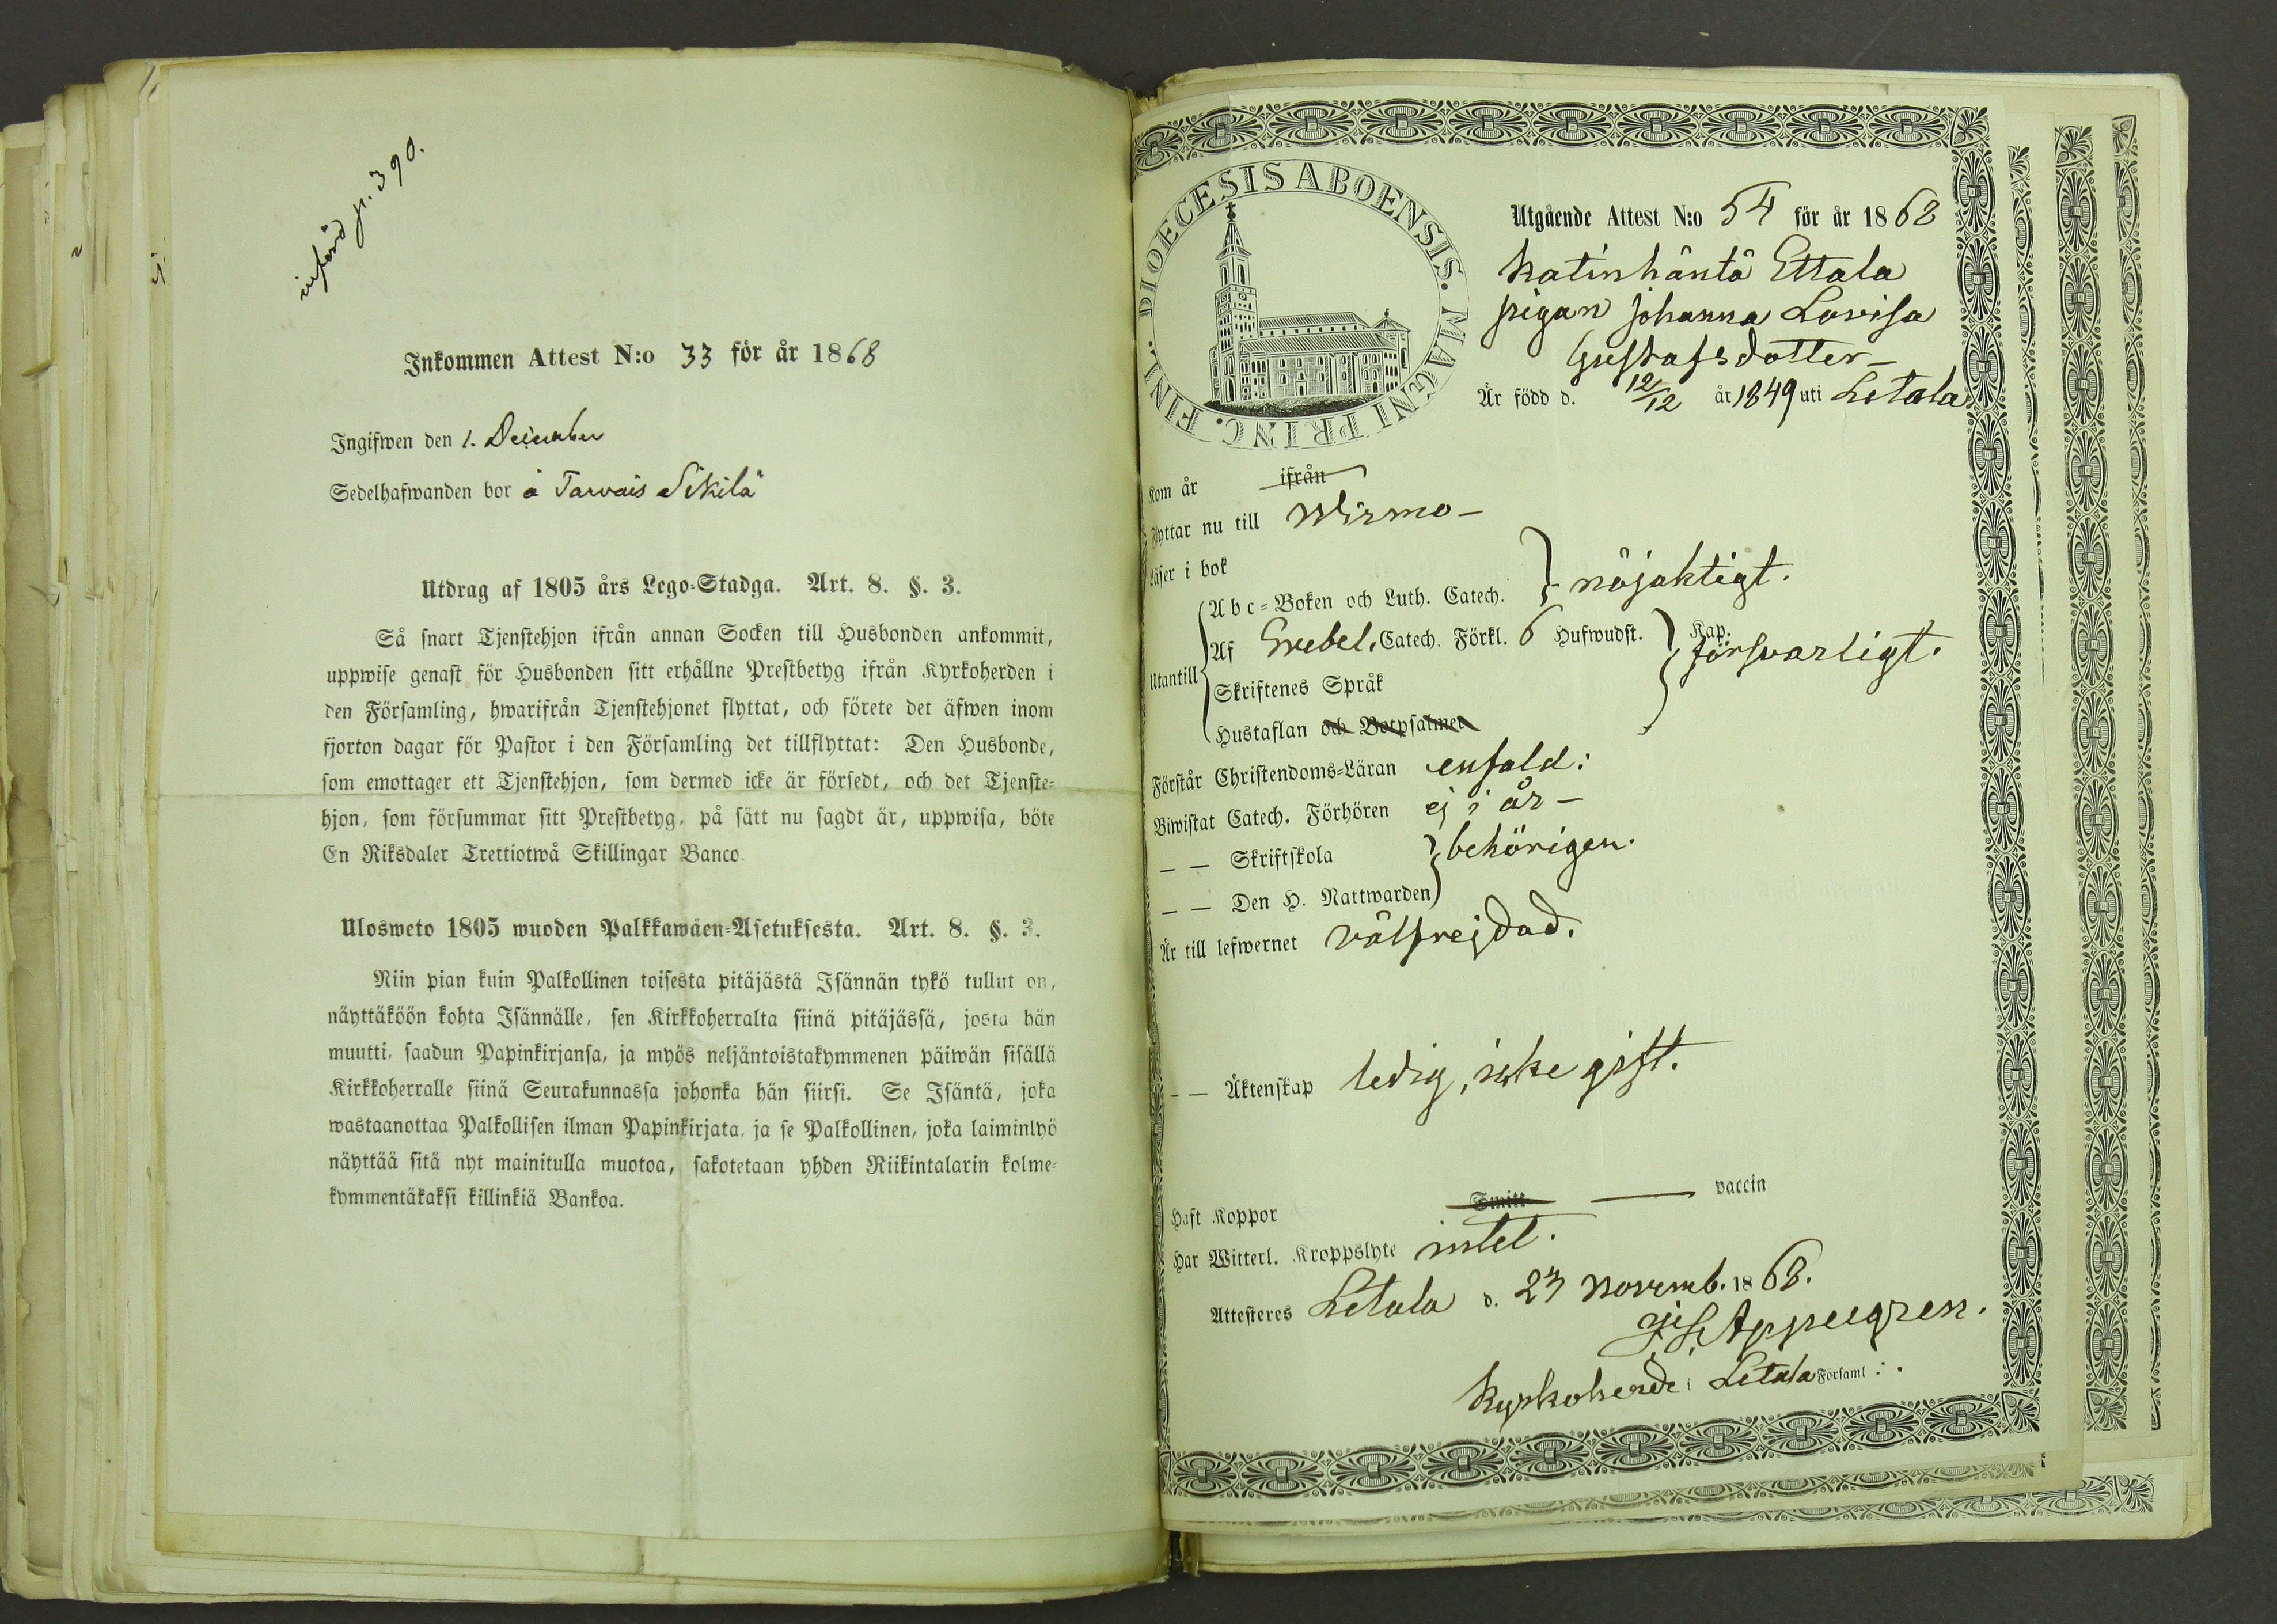 införd p. 390.
Inkommen Attest N:o 33 för år 1868
Ingifwen den 1. December
Sedelhafwanden bor å Tarvais Sikilä
Utdrag af 1805 års Lego-Stadga. Art. 8. §. 3.
Så snart Tjenstehjon ifrån annan Socken till Husbonden ankommit,
uppwise genast för Husbonden sitt erhållne Prestbetyg ifrån Kyrkoherden i
den Församling, hwarifrån Tjenstehjonet flyttat, och förete det äfwen inom
fjorton dagar för Pastor i den Församling det tillflyttat: Den Husbonde,
som emottager ett Tjenstehjon, som dermed icke är försedt, och det Tjenste-
hjon, som försummar sitt Prestbetyg, på sätt nu sagdt är, uppwisa, böte
En Riksdaler Trettiotwå Skillingar Banco.
Ulosweto 1805 wuoden Palkkawäen-Asetuksesta. Art. 8. §. 3.
Niin pian kuin Palkollinen toisesta pitäjästä Isännän tykö tullut on,
näyttäköön kohta Isännälle, sen Kirkkoherralta siinä pitäjässä, josta hän
muutti, saadun Papinkirjansa, ja myös neljäntoistakymmenen päiwän sisällä
Kirkkoherralle siinä Seurakunnassa johonka hän siirsi. Se Isäntä, joka
wastaanottaa Palkollisen ilman Papinkirjata, ja se Palkollinen, joka laiminlyö
näyttää sitä nyt mainitulla muotoa, sakotetaan yhden Riikintalarin kolme-
kymmentäkaksi killinkiä Bankoa.
DIOECESIS ABOENSIS. MAGNI PRINC. FINL.
Utgående Attest N:o 54 för år 1868
Katinhäntä Ettala
pigan Johanna Lovisa
Gustafsdotter –
Är född d. 12/12 år 1849 uti Letala
Kom år ifrån
Flyttar nu till Wirmo –
Läser i bok
Abc-Boken och Luth. Catech. } nöjaktigt.
Utantill Af Grebel. Catech. Förkl. 6 Hufwudst. Kap. försvarligt.
Skriftenes Språk
Hustaflan och Botpsalmer
Förstår Christendoms-Läran enfald:
Biwistat Catech. Förhören ej i år –
– – Skriftskola } behörigen.
– – Den H. Nattwarden
Är till lefwernet välfrejdad.
– – Äktenskap ledig, icke gift.
Haft Koppor Smitt — vaccin
Har Witterl. Kroppslyte intet.
Attesteres Letala d. 27 Novemb. 1868.
Appelgren.
Kyrkoherde i Letala Församl:.